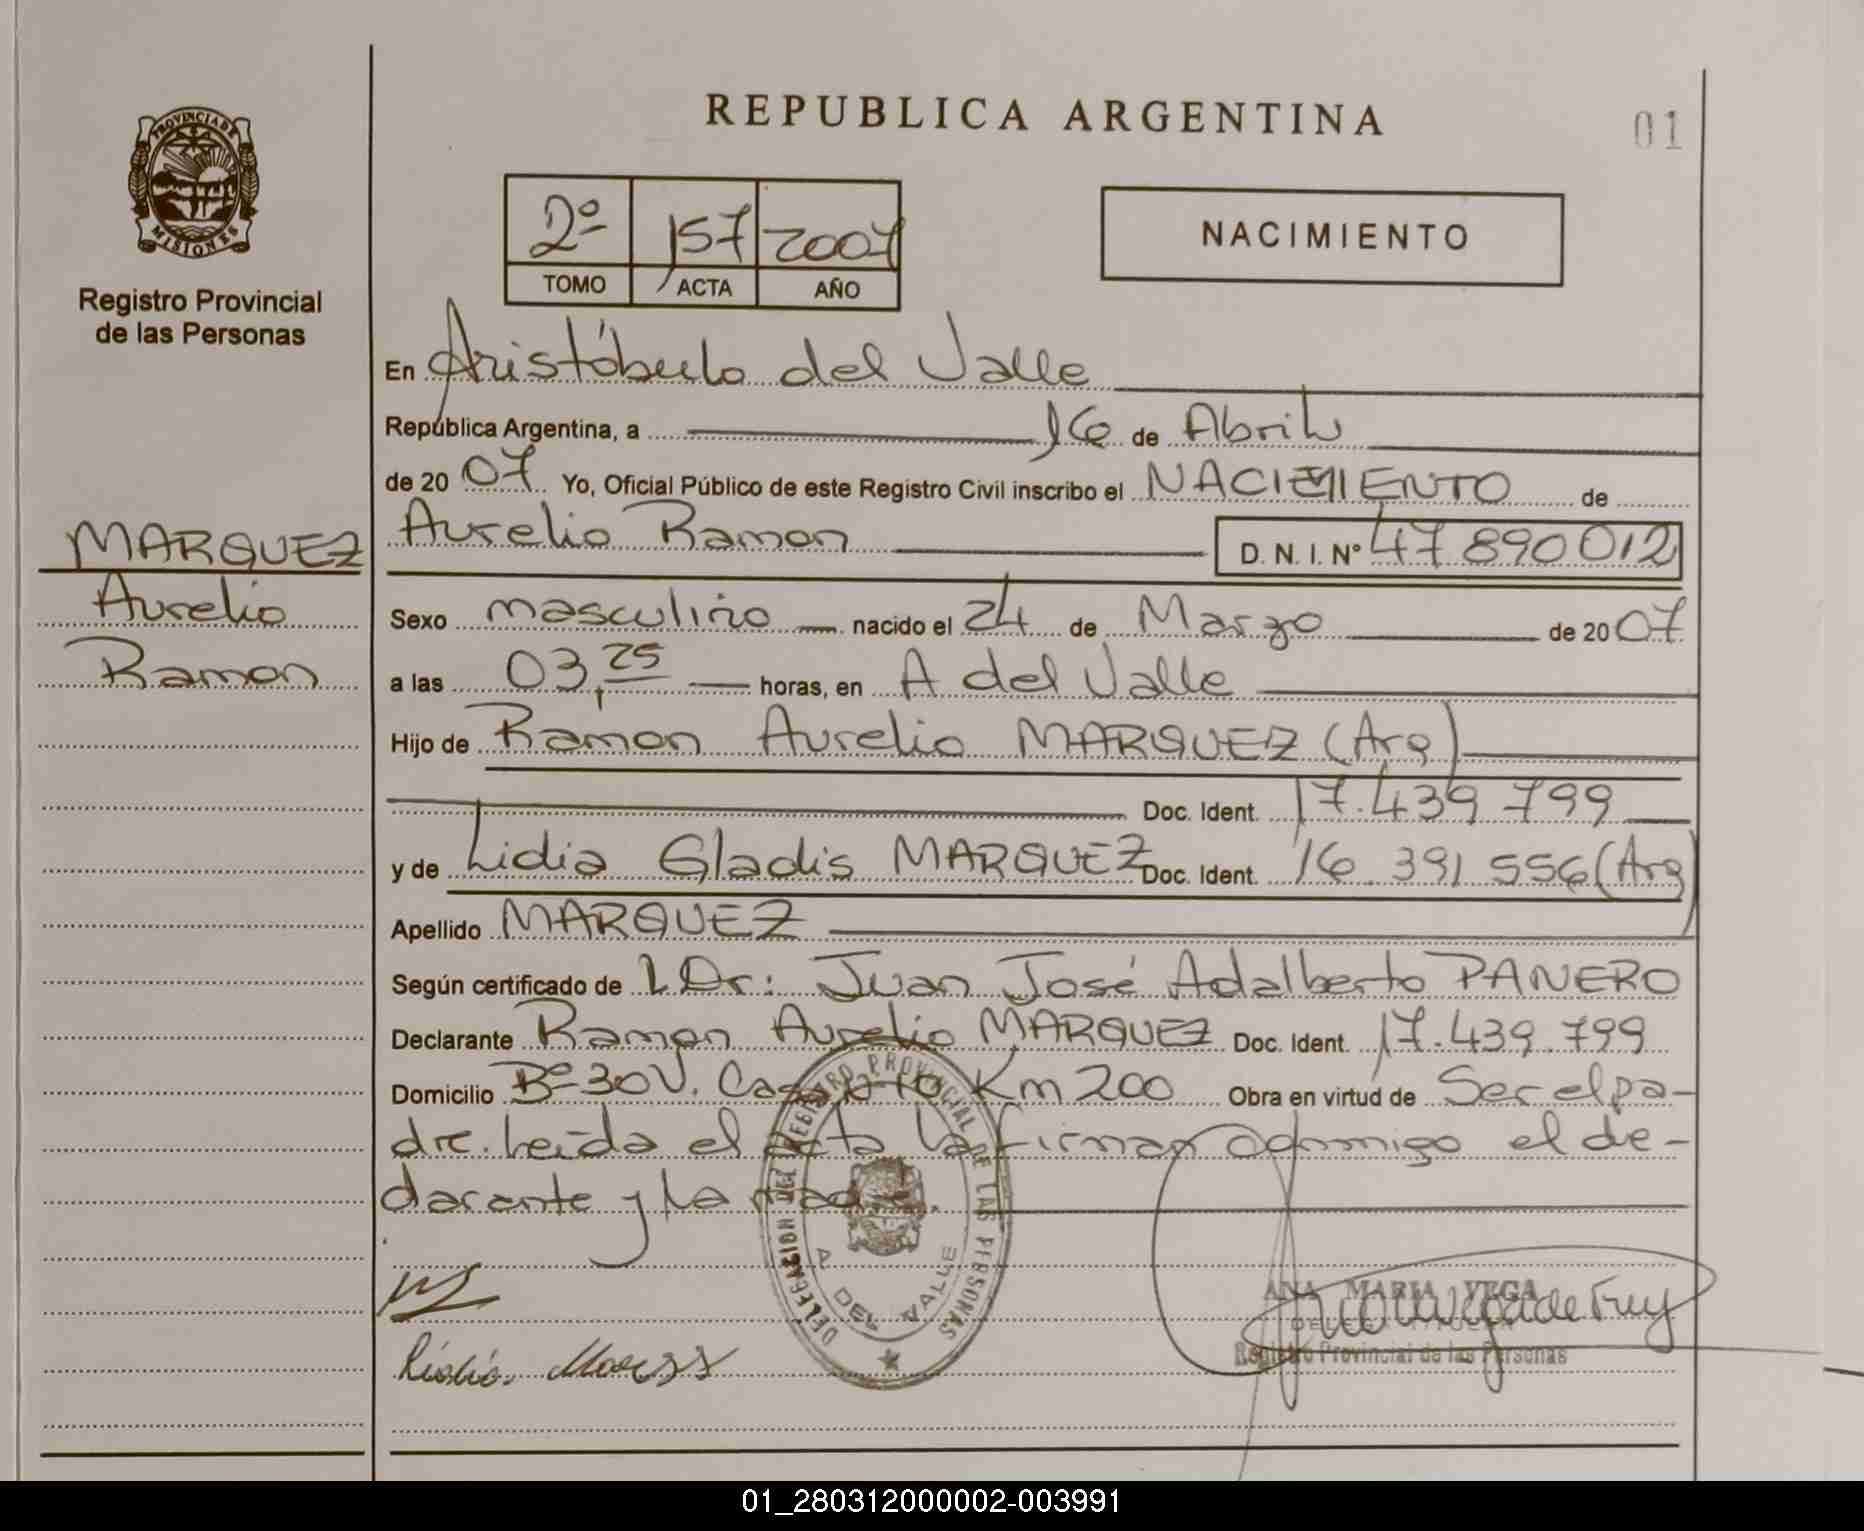 REPUBLICA ARGENTINA
01
PROVINCIA DE
MISIONES
Registro Provincial
de las Personas
2º 157 2007
TOMO ACTA AÑO
NACIMIENTO
En Aristóbulo del Valle
República Argentina, a 16 de Abril
de 20 07 Yo, Oficial Público de este Registro Civil inscribo el NACIMIENTO de
MARQUEZ
Aurelio
Ramon
Aurelio Ramon D. N. I. Nº 47 890 012
Sexo masculino nacido el 24 de Marzo de 20 07
a las 03,25 horas, en A del Valle
Hijo de Ramon Aurelio MARQUEZ (Arg)
Doc. Ident. 17.439 799
y de Lidia Gladis MARQUEZ Doc. Ident. 16.391 556 (Arg)
Apellido MARQUEZ
Según certificado de l Dr: Juan José Adalberto PANERO
Declarante Ramon Aurelio MARQUEZ Doc. Ident. 17.439.799
Domicilio Bº 30 V. Casa 10 Km 200 Obra en virtud de Ser el pa-
dre. Leida el acta la firman conmigo el de-
clarante y la madre.
DELEGACION DEL REGISTRO PROVINCIAL DE LAS PERSONAS
A DEL VALLE
ANA MARIA VEGA
Registro Provincial de las Personas
01_280312000002-003991